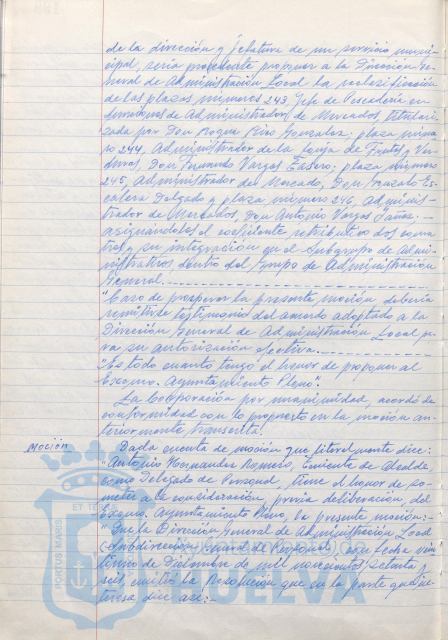 de la dirección y jefatura de un servicio muni-
cipal, sería procedente proponer a la Dirección Ge-
neral de Administración Local la reclasificación
de las plazas números 243, Jefe de Pescadería en
de Administrador de Mercados, titulari-
zada por Don Roque Rino Gonzalez, plaza núme-
ro 244, Administrador de la Lonja de Frutas y Ver-
duras, Don Fernando Vargas; plaza número
245, Administrador del Mercado, Don Gonzalo Es-
calera Delgado y plaza número 246, Adminis-
trador de Mercados, Don Antonio Vargas.-
asignándoles el coeficiente retributivo dos coma
tres y su integración en el Subgrupo de Admi-
nistrativos dentro del Grupo de Administración
General.
"Caso de prosperar la presente moción debería
remitirse testimonio del acuerdo adoptado a la
Dirección General de Administración Local pa-
ra su autorización efectiva.
"Es todo cuanto tengo el honor de proponer al
Excmo. Ayuntamiento Pleno".
La Corporación por unanimidad, acordó de
conformidad con lo propuesto en la moción an-
teriormente transcrita.
Moción
Dada cuenta de moción que literalmente dice:
"Antonio Hernandez Romero, Teniente de Alcalde,
como Delegado de Personal, tiene el honor de so-
meter a la consideración, previa deliberación del
Excmo. Ayuntamiento Pleno, la presente moción:-
"Que la Dirección General de Administración Local
(Subdirección General de Personal) con fecha vein-
tiuno de Diciembre de mil novecientos setenta y
seis, emitió la Resolución que en la parte que in-
teresa dice así:-
PORTUS MARIS
ET TE
HUELVA